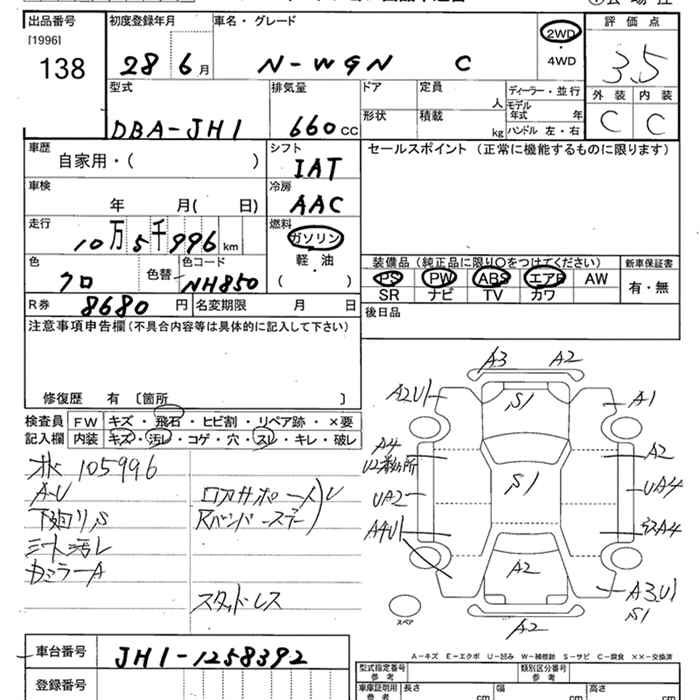 出品番号
[1996]
138
初度登録年月
28 6月
車名・グレード
N-WGN C
2WD
・
4WD
評価点
3.5
外装 内装
C C
型式
DBA-JH1
排気量
660cc
ドア
定員
人
形状
積載
kg
ディーラー・並行
モデル
年式 年
ハンドル 左・右
車歴
自家用・( )
シフト
IAT
セールスポイント (正常に機能するものに限ります)
車検
年 月( 日)
冷房
AAC
走行
10万5千996km
燃料
ガソリン
軽・油
( )
色
クロ
色替
色コード
NH850
装備品(純正品に限り○をつけてください)
PS PW ABS エアB AW
SR ナビ TV カワ
新車保証書
有・無
R券
8680円
名変期限 月 日
後日品
注意事項申告欄(不具合内容等は具体的に記入して下さい)
修復歴 有 〔箇所 〕
検査員
記入欄
FW キズ・飛石・ヒビ割・リペア跡・×要
内装 キズ・汚レ・コゲ・穴・スレ・キレ・破レ
105996
A-U
下廻リS
シート汚レ
カミラーA
スタッドレス
A3 A2
A2U1 S1 A1
A4 A2
UA2 S1 UA4
A4U1 A4
A2
A3.U1
S1
A2
スペア
A−キズ E−エクボ U−凹み W−補修跡 S−サビ C−腐食 ××−交換済
車台番号
JH1-1258392
登録番号
型式指定番号
参考
類別区分番号
参考
車庫証明用
参考
長さ cm
幅 cm
高さ cm